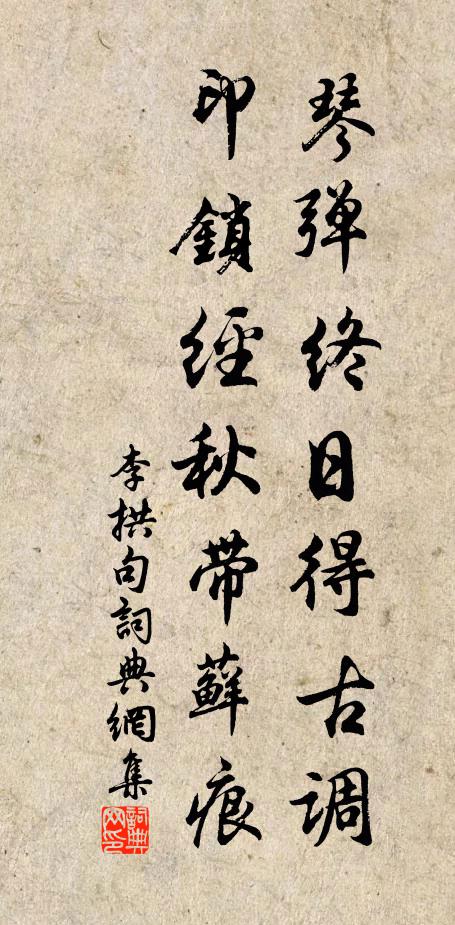 琴弹终日得古调
印鎖經秋带蘚痕
李拱句詞典網集
詞典网印